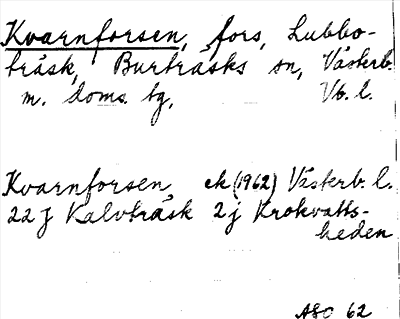 Kvarnforsen, fors, Lubbo-
träsk, Burträsks sn, Västerb.
m. doms. tg, Vb. l.
Kvarnforsen ek (1962) Västerb. l.
22 J Kalvträsk 2 j Krokvatts-
heden
ASO 62